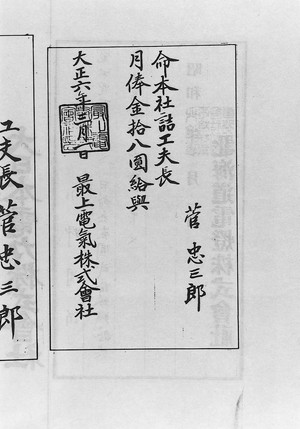 菅忠三郎
命本社詰工夫長
月俸金拾八圓給與
大正六年三月一日 最上電氣株式會社
工夫長菅忠三郎